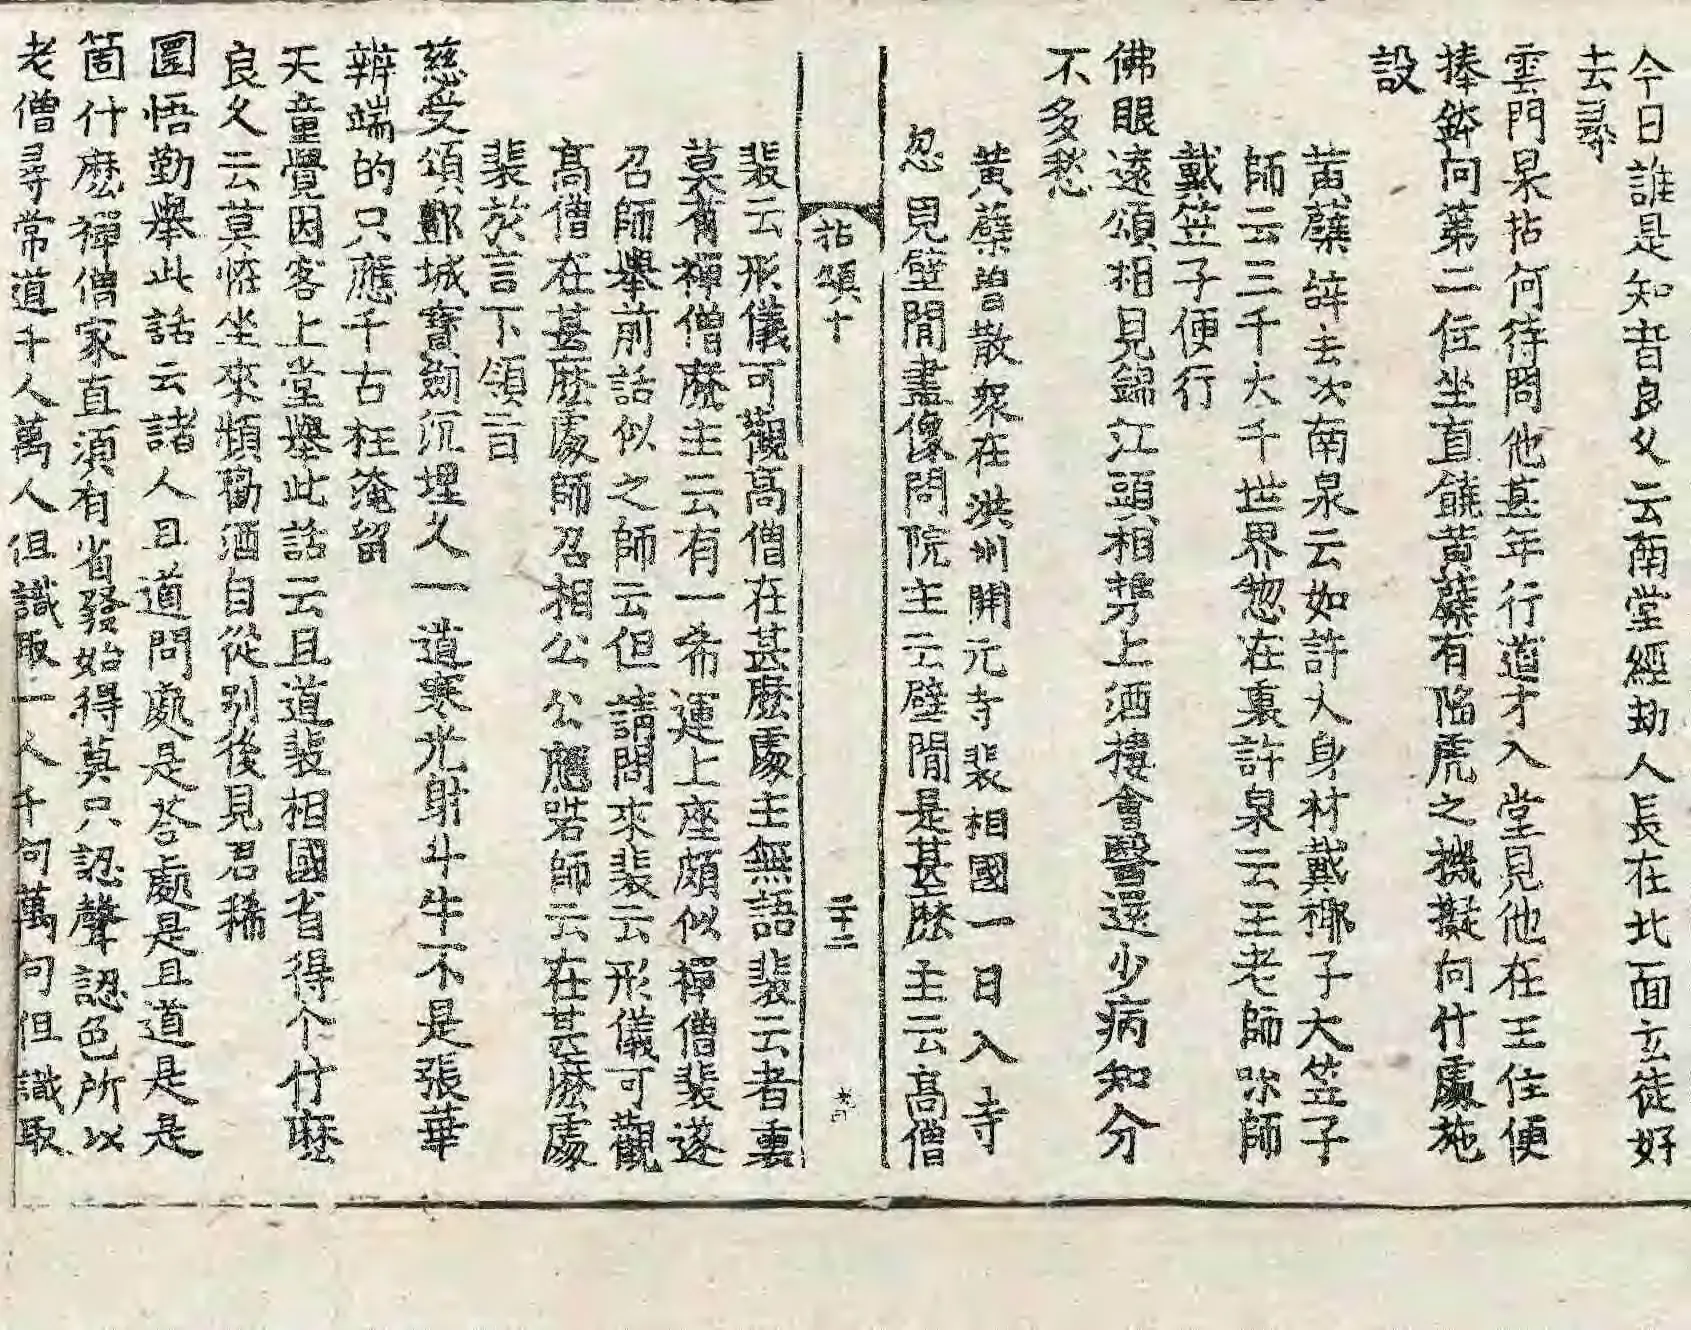 今日誰是知音良久云南堂經劫人長在北面玄徒好
去尋
雲門杲拈何待問他甚年行道才入堂見他在王位便
捧鉢向第二位坐直饒黃蘗有陷虎之機擬向什處施
設
黃蘗辝去次南泉云如許人身材戴櫛子大笠子
師云三千大千世界惣在裏許泉云王老師你師
戴笠子便行
佛眼遠頌相見錦江頭相携上酒樓會醫還少病知分
不多愁
黃蘗曾散衆在洪州開元寺裴相國一日入寺
忽見壁間畫像問院主云壁間是甚麽主云高僧
拈頌十
二十二
裴云形儀可觀高僧在甚麽處主無語裴云者裏
莫有禪僧麽主云有一希運上座頗似禪僧裴遂
召師舉前話似之師云但請問來裴云形儀可觀
高僧在甚麽處師召相公公應喏師云在甚麽處
裴於言下領旨
慈受頌酆城寶劒沉埋久一道寒光射斗牛不是張華
辨端的只應千古枉淹留
天童覺因客上堂舉此話云且道裴相國省得个什麽
良久云莫恠坐來頻勸酒自從別後見君稀
圜悟勤舉此話云諸人且道問處是荅處是且道是是
箇什麽禪僧家直須有省發始得莫只認聲認色所以
老僧尋常道千人萬人但識取一人千句萬句但識取